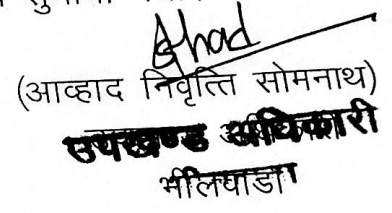 Ahad
(आव्हाद निवृत्ति सोमनाथ)
उपखण्ड अधिकारी
भीलवाडा